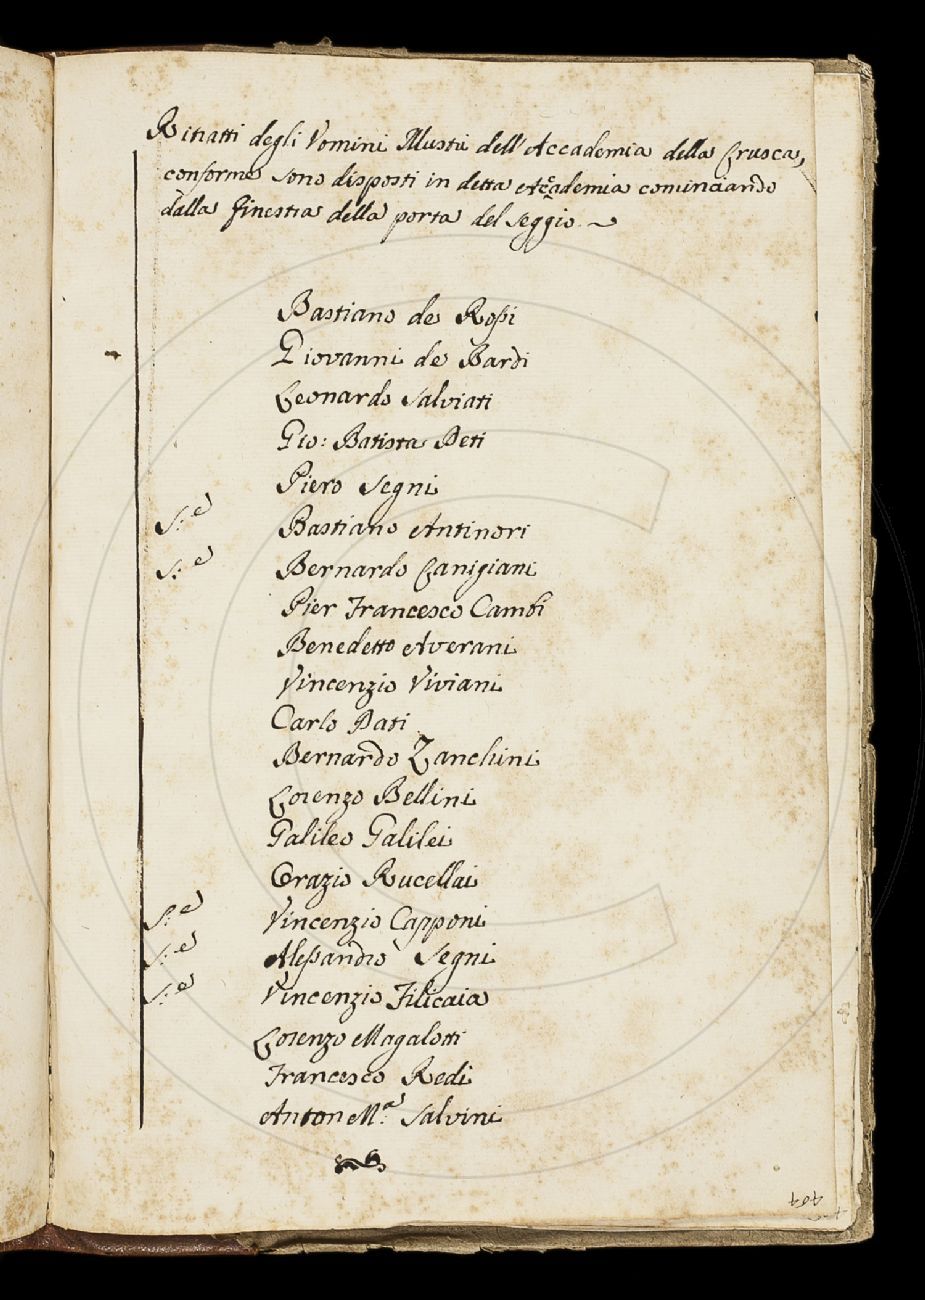 Ritratti degli Vomini Illustri dell'Accademia della Crusca,
conforme sono disposti in detta Accademia cominciando
dalla finestra della porta del seggio.
Bastiano de Rossi
Giovanni de Bardi
Leonardo Salviati
Gio: Batista Deti
Piero Segni
S:e Bastiano Antinori
S:e Bernardo Canigiani
Pier Francesco Cambi
Benedetto Averani
Vincenzio Viviani
Carlo Dati
Bernardo Zanchini
Lorenzo Bellini
Galileo Galilei
Orazio Rucellai
S:e Vincenzio Capponi
S:e Alessandro Segni
S:e Vincenzio Filicaia
Lorenzo Magalotti
Francesco Redi
Anton M.a Salvini